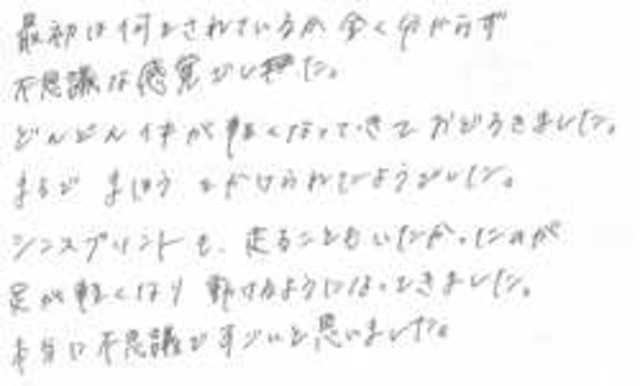 最初は何をされているか全く分からず
不思議な感覚でした。
どんどん体が軽くなってきておどろきました。
まるでまほうをかけられたようでした。
シンスプリントも、走ることもいたかったのが
足が軽くなり動けるようになってきました。
本当に不思議ですごいと思いました。